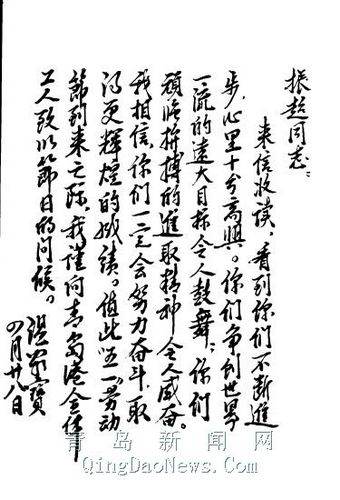 振超同志：
来信收读，看到你们不断进
步，心里十分高興。你们争创世界
一流的远大目标令人鼓舞；你们
顽强拼搏的進取精神令人感奋。
我相信，你们一定会努力奋斗，取
得更辉煌的成績。值此“五一”劳动
節到来之际，我谨向青岛港全体
工人致以節日的问候。
温家寶
四月廿八日
青岛新闻网
QingDaoNews.Com